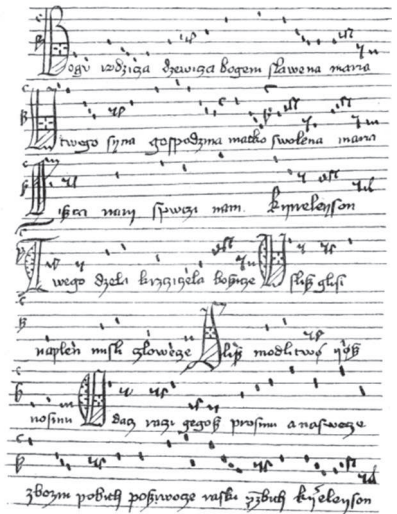 Bogu rodzicza dzewicza bogem slawena maria
U twego syna gospodzina matko swolena maria
nam spwczi nam. kyrieleyson
Twego dzela krzcziczela bozicze Uslisz glosi
naplen misli czlowecze Slisz modlitwo yosz
nosimi dacz raczi gegosz prosimi anaswecze
zbozni pobith poszwocze raski kyrieleyson